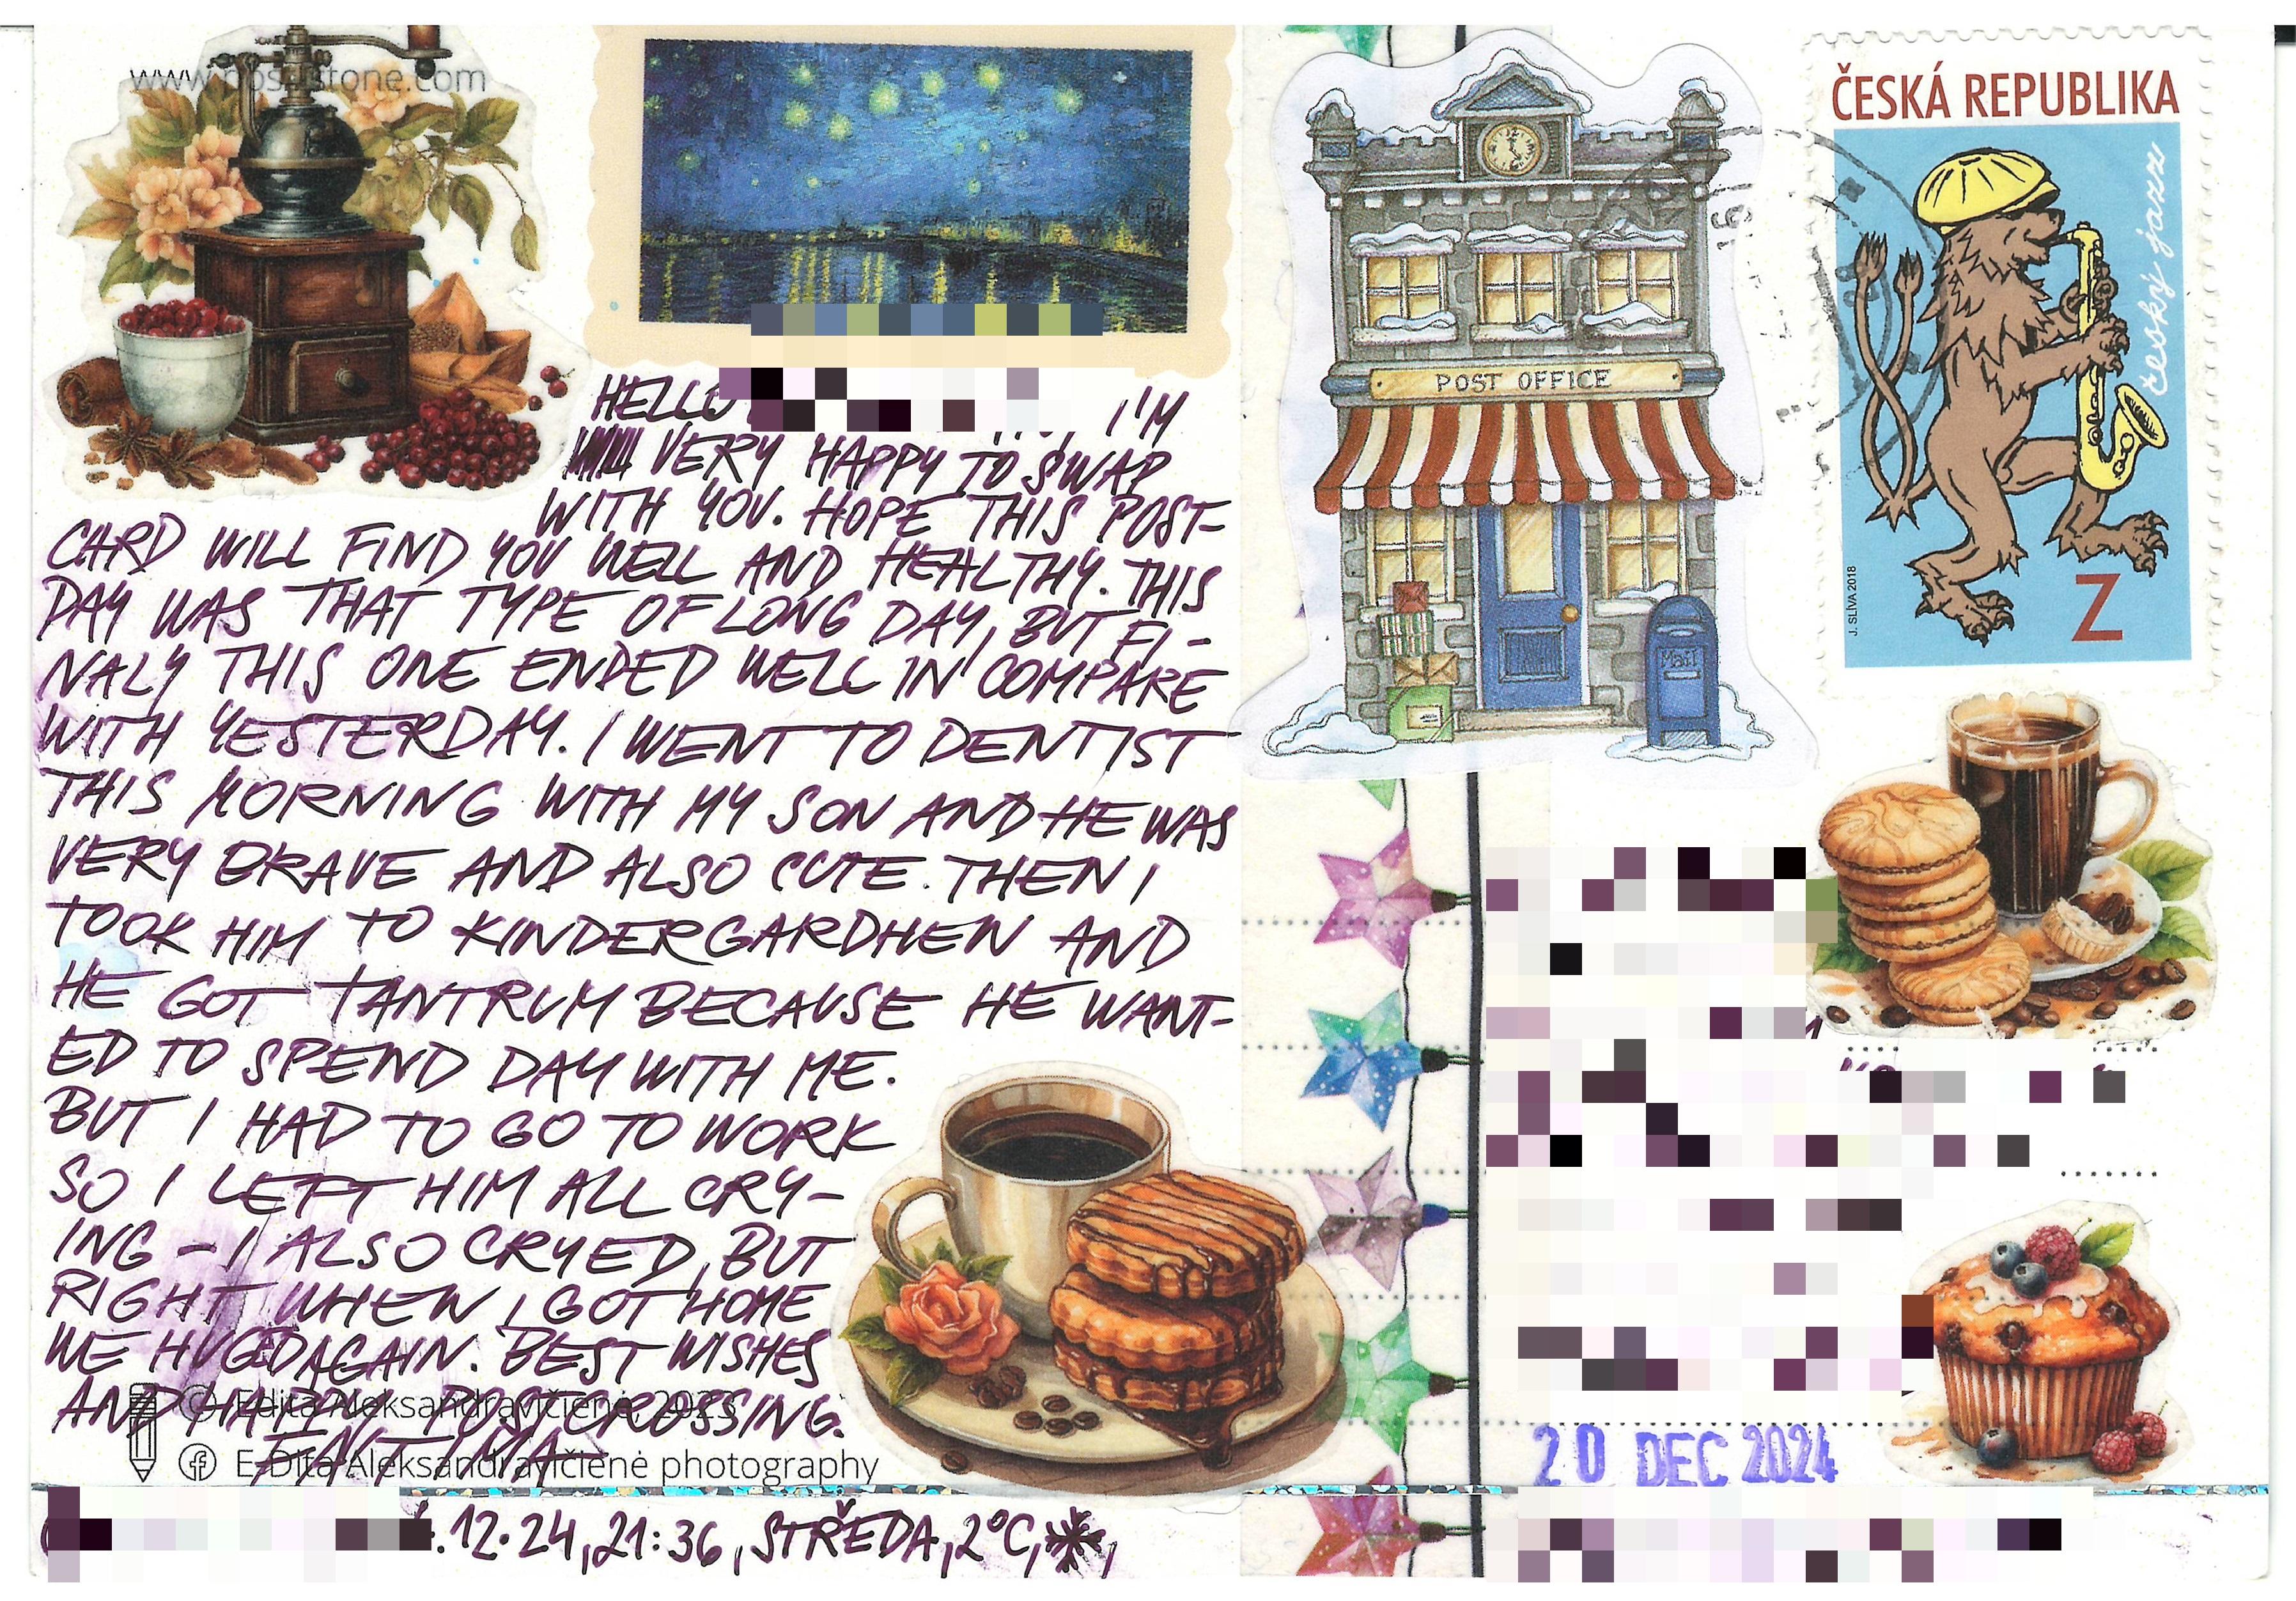 HELLO
I'M
VERY HAPPY TO SWAP
WITH YOU. HOPE THIS POST-
CARD WILL FIND YOU WELL AND HEALTHY. THIS
DAY WAS THAT TYPE OF LONG DAY, BUT FI-
NALY THIS ONE ENDED WELL IN COMPARE
WITH YESTERDAY. I WENT TO DENTIST
THIS MORNING WITH MY SON AND HE WAS
VERY BRAVE AND ALSO CUTE. THEN I
TOOK HIM TO KINDERGARDHEN AND
HE GOT TANTRUM BECAUSE HE WANT-
ED TO SPEND DAY WITH ME.
BUT I HAD TO GO TO WORK
SO I LEFT HIM ALL CRY-
ING - I ALSO CRYED, BUT
RIGHT WHEN I GOT HOME
WE HUGED AGAIN. BEST WISHES
AND HAPPY POSTCROSSING.
© Edita Aleksandravičienė, 2023
E-Dita Aleksandravičienė photography
.12.24, 21:36, STŘEDA, 2°C,
POST OFFICE
Mail
ČESKÁ REPUBLIKA
český jazz
J. SLÍVA 2018
Z
20 DEC 2024